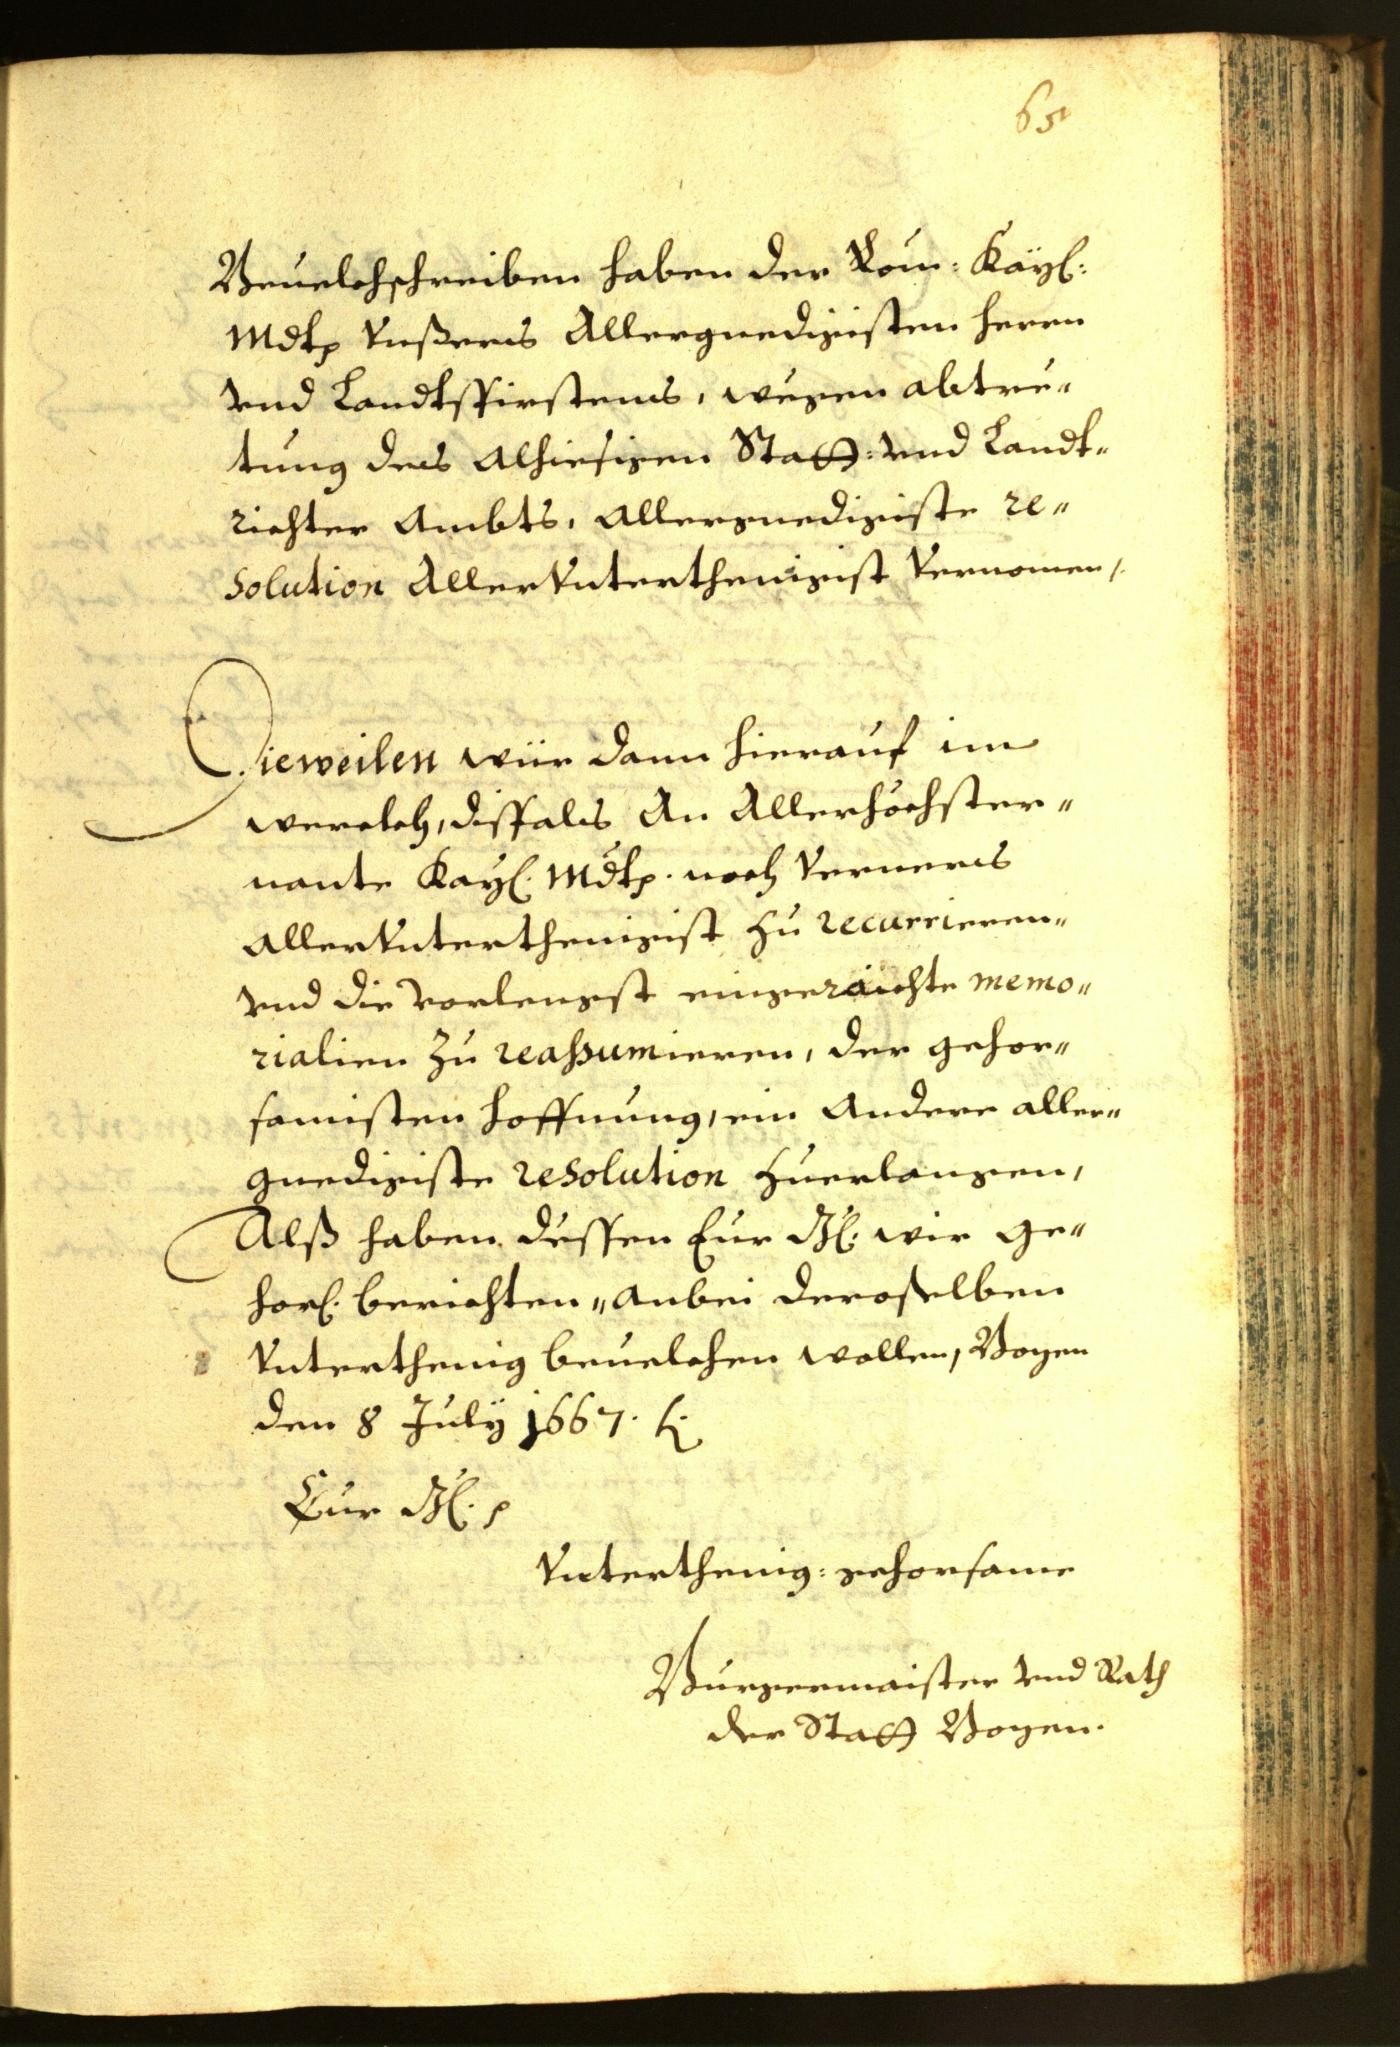 65
Beuelchschreiben haben der Röm: Kaÿl:
Mdtp Vnßers Allergnedigisten herrn
vnd Landtsfirstens, wegen abtre„
tung des alhiesigen Statt: vnd Landt„
richter Ambts, allergnedigiste re„
solution AllerVnterthenigist Vernomen,
Dieweilen wür dann hierauf im
werckh, dißfals An Allerhöchster„
nante Kayl. Mdtp. noch Verners
allerVnterthenigist zu recurrieren„
vnd die vorlengst eingeraichte memo„
rialien zu reassumieren, der gehor„
samisten hoffnung, ein Andere aller„
gnedigiste resolution zuerlangen,
Alß haben dessen Eur Gl. wir ge„
horl. berichten„ anbei deroselben
Vnterthenig beuelchen wollen, Bozen
den 8 Julÿ 1667.
Eur Gl. p
Vnterthenig: gehorsame
Burgermaister vnd Rath
der Statt Bozen.